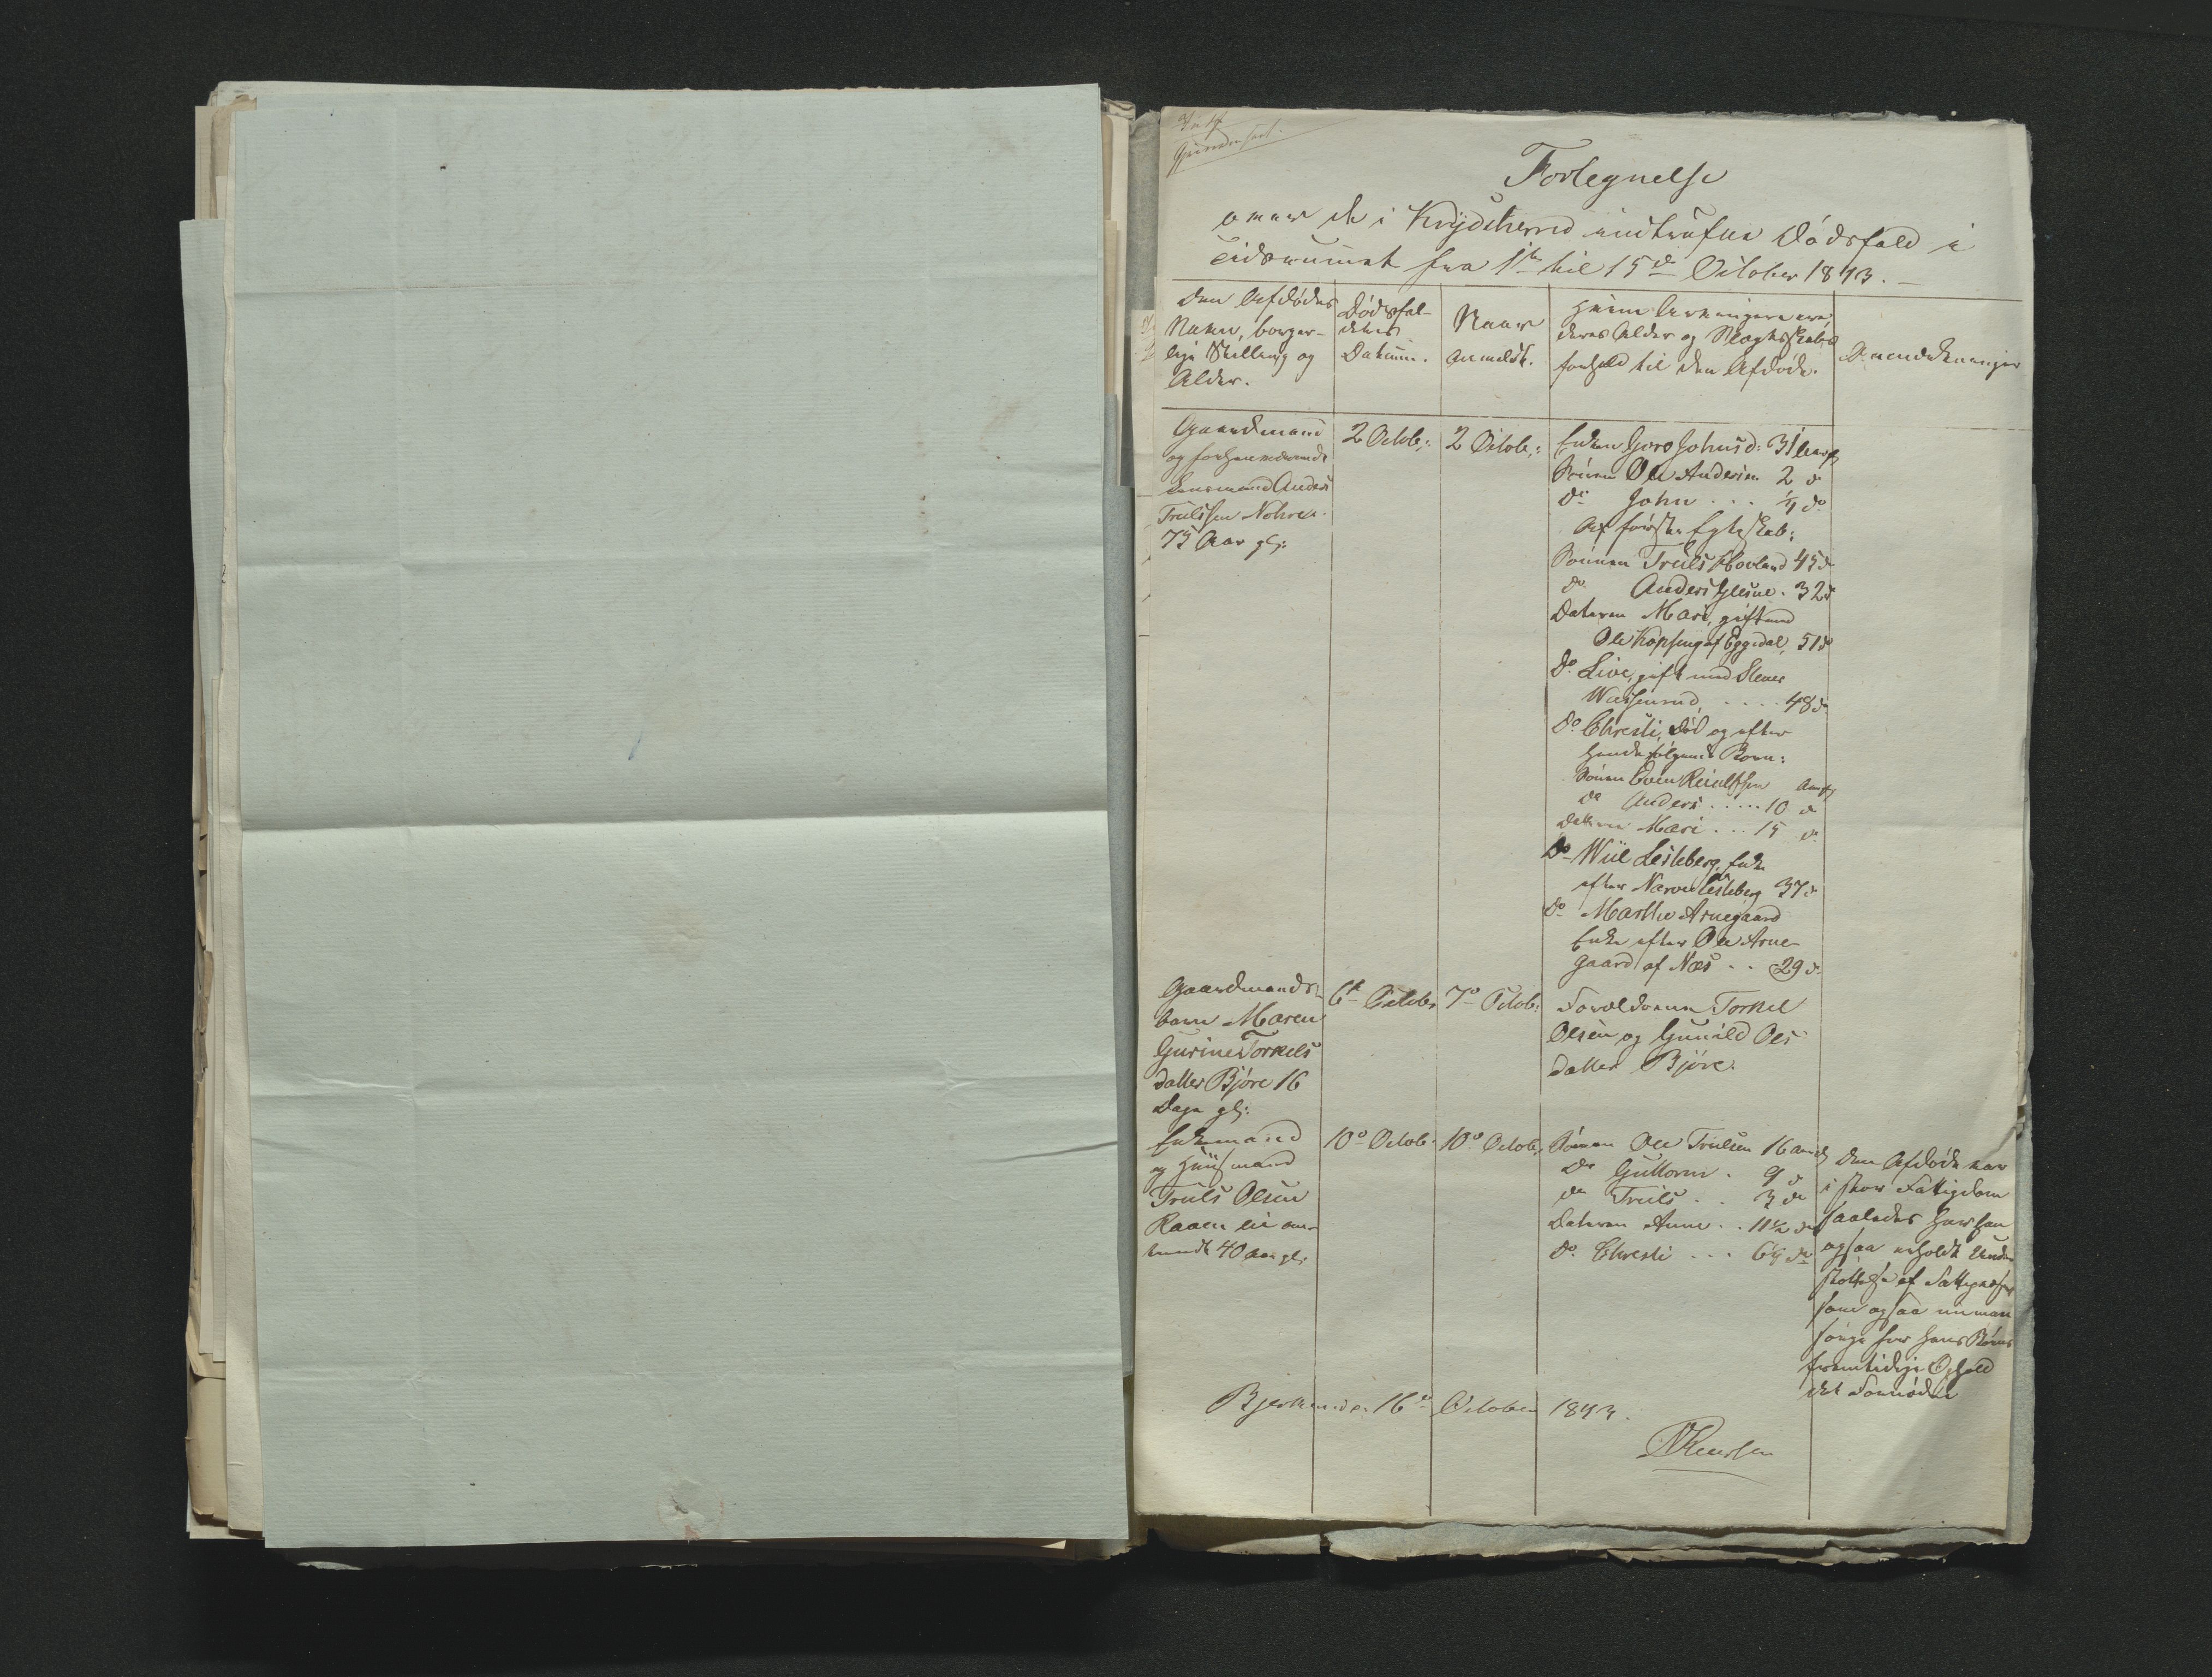 Fortegnelse
over de i Krydsherred indtrufne Dödsfald i
Tidsrummet fra 1te til 15de October 1843.
Den Afdødes
Navn, borger-
lige Stilling og
Alder.
Dødsfal-
dets
Datum.
Naar
anmeldt.
Hvem Arvingerne ere,
deres Alder og Slægtskabs
forhold til den Afdøde.
Anmærkninger
Gaardmand
og forhenværende
Lensmand Anders
Trulssen Nohre
75 Aar gl:
2 Octob:
2 Octob:
Enken Goro Johnsd: 31 Aar gl
Sönnen Ole Andersen 2 do
do John . . . ¼ do
Af første Egteskab:
Sönnen Truls Hovland 45 do
do Anders Glesne . 32 do
Datteren Mari, gift med
Ole Kopseng af Eggedal, 51 do
do Live, gift med Stener
. . . . 48 do
do Christi, död og efter
hende følgende Börn:
Sönnen Even
do Anders . . . . . 10 do
Datteren Mari . . . 15 do
do Wiil Lesteberg, Enke
efter Narve Lesteberg 37 do
do Marthe Arnegaard
Enke efter Ole Arne-
gaard af Næs . . 29 do
Gaardmands-
barn Maren
Gurine Torkels
datter Björe 16
Dage gl:
6te Octobr
7de Octob:
Forældrene Torkel
Olsen og Gunild Ols
datter Björe.
Enkemand
og Huusmand
Truls Olsen
Raaen om-
trendt 40 Aar gl:
10de Octob:
10de Octob:
Sönnen Ole Trulsen 16 Aar gl
do Guttorm . 9 do
do Truls . . 3 do
Datteren Anne . . 11½ do
do Christi . . . 6¼ do
Den Afdøde var
i stor Fattigdom
saaledes har han
ogsaa erholdt Under
støttelse af Fattigkassen
som ogsaa nu maa
sörge for hans Börns
fremtidige Ophold
det Fornödne
16de October 1843.